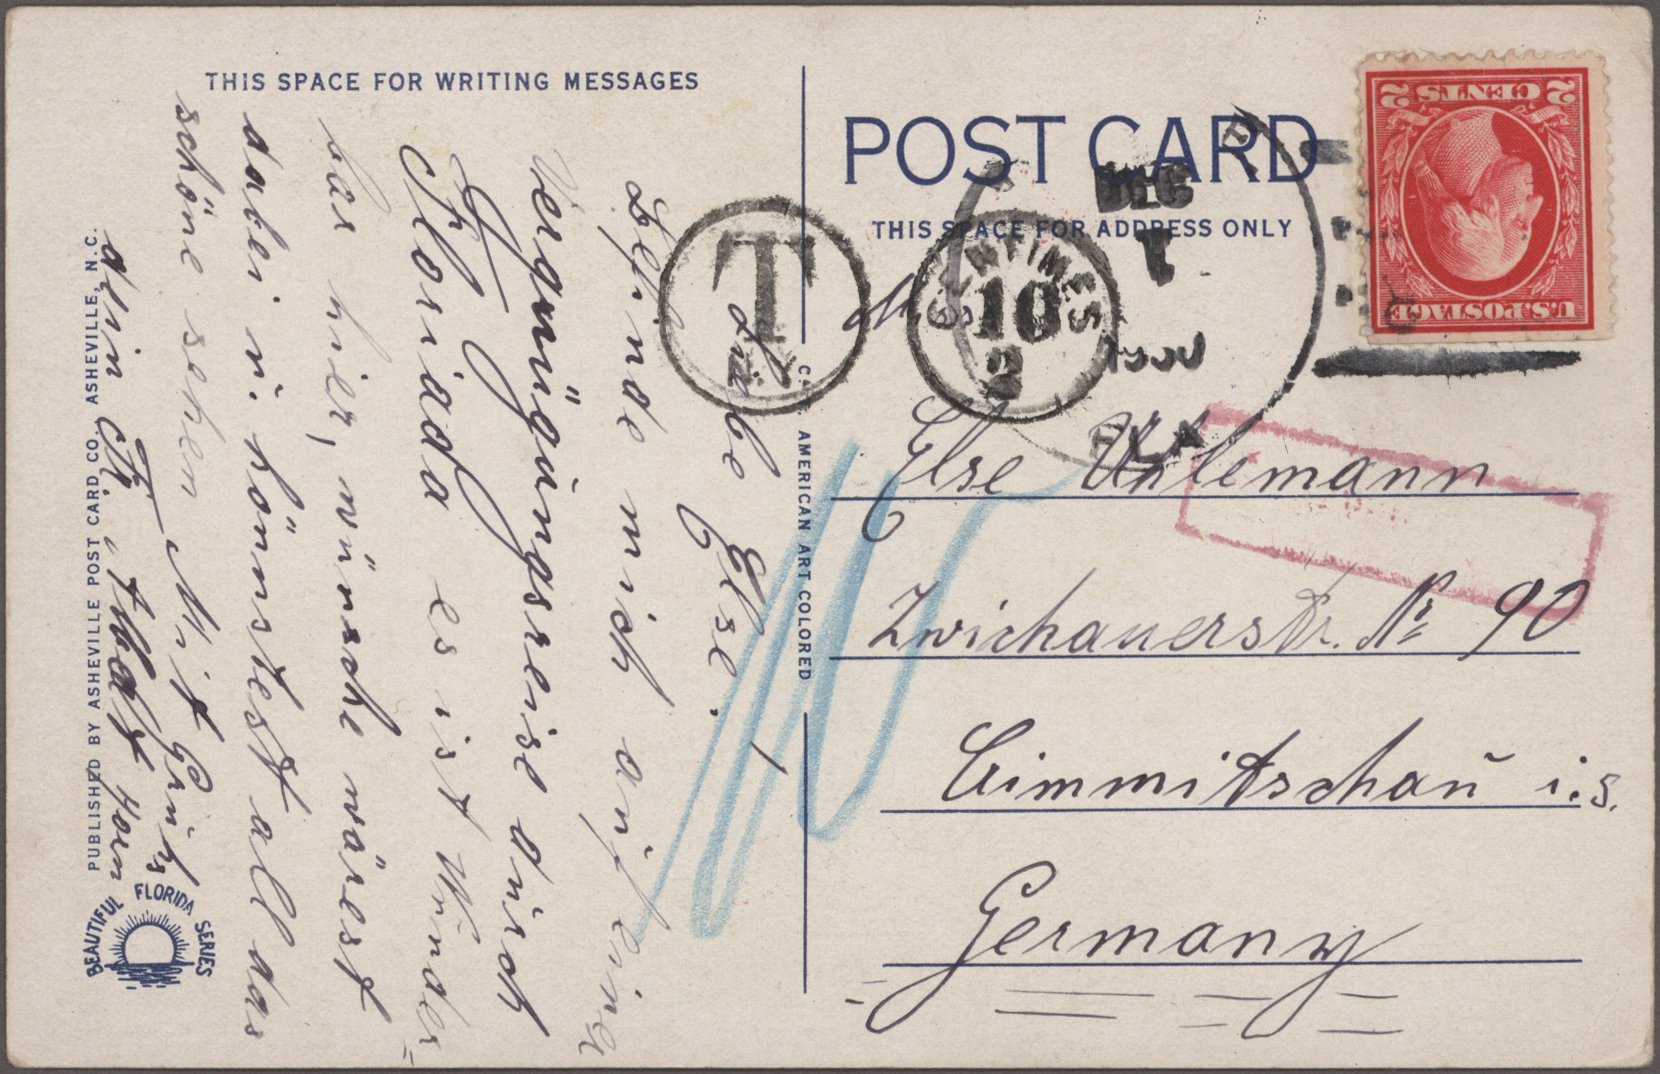 THIS SPACE FOR WRITING MESSAGES
Liebe Else!
Befinde mich auf eine
Vergnügungsreise durch
Florida es ist Wunder=
bar hier, wünsche wärest
dabei u. könntest all das
schöne sehen Mit Gruß
dein
PUBLISHED BY ASHEVILLE POST CARD CO., ASHEVILLE, N.C.
BEAUTIFUL FLORIDA SERIES
AMERICAN ART COLORED
POST CARD
THIS SPACE FOR ADDRESS ONLY
U.S. POSTAGE
2 CENTS 2
DEC
1
1930
FLA
T
CENTIMES
10
2
Else Uhlemann
Zwickauerstr. Nr 90
Crimmitschau i. S.
Germany
10